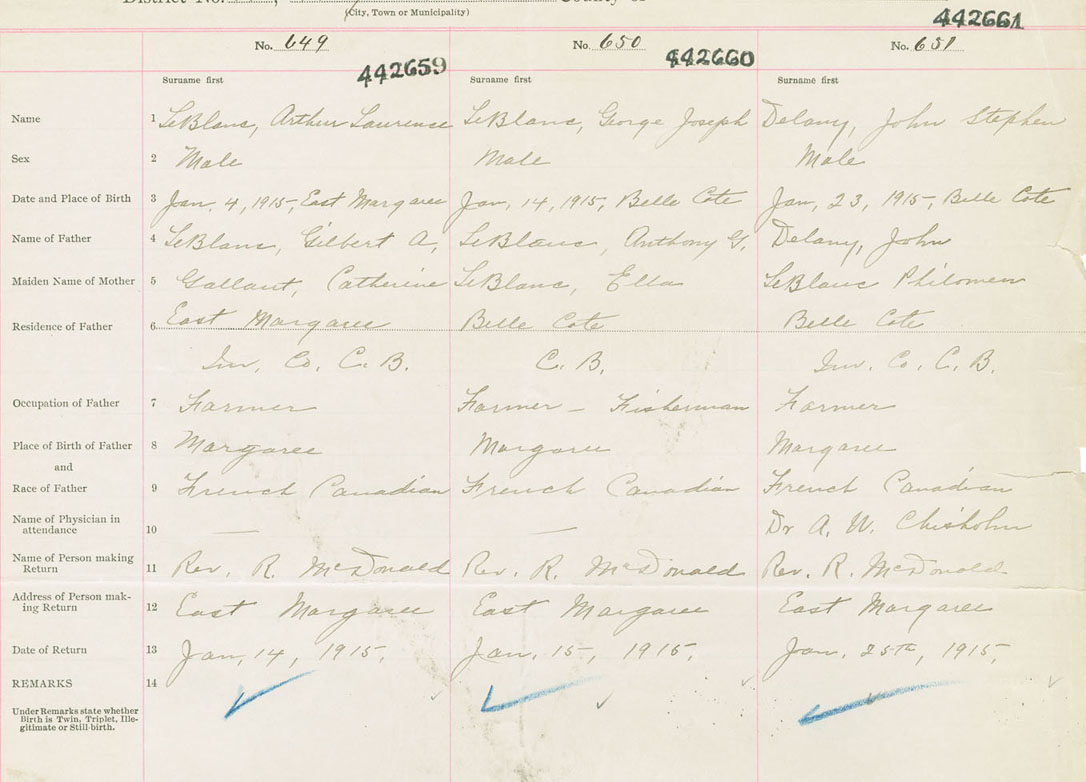 District No. County of
(City, Town or Municipality)
442661
No. 649 No. 650 No. 651
442659 442660
Surname first Surname first Surname first
Name 1 LeBlanc, Arthur Laurence LeBlanc, George Joseph Delany, John Stephen
Sex 2 Male Male Male
Date and Place of Birth 3 Jan. 4, 1915, East Margaree Jan, 14, 1915, Belle Cote Jan, 23, 1915, Belle Cote
Name of Father 4 LeBlanc, Gilbert A, LeBlanc, Anthony G. Delany, John
Maiden Name of Mother 5 Gallant, Catherine LeBlanc, Ella LeBlanc Philomen
Residence of Father 6 East Margaree Belle Cote Belle Cote
Inv. Co. C. B. C. B. Inv. Co. C. B.
Occupation of Father 7 Farmer Farmer - Fisherman Farmer
Place of Birth of Father 8 Margaree Margaree Margaree
and
Race of Father 9 French Canadian French Canadian French Canadian
Name of Physician in
attendance 10 — — Dr A. W. Chisholm
Name of Person making
Return 11 Rev. R. McDonald Rev. R. McDonald Rev. R. McDonald
Address of Person mak-
ing Return 12 East Margaree East Margaree East Margaree
Date of Return 13 Jan, 14, 1915, Jan, 15, 1915, Jan. 25th, 1915,
REMARKS 14
Under Remarks state whether
Birth is Twin, Triplet, Ille-
gitimate or Still-birth.